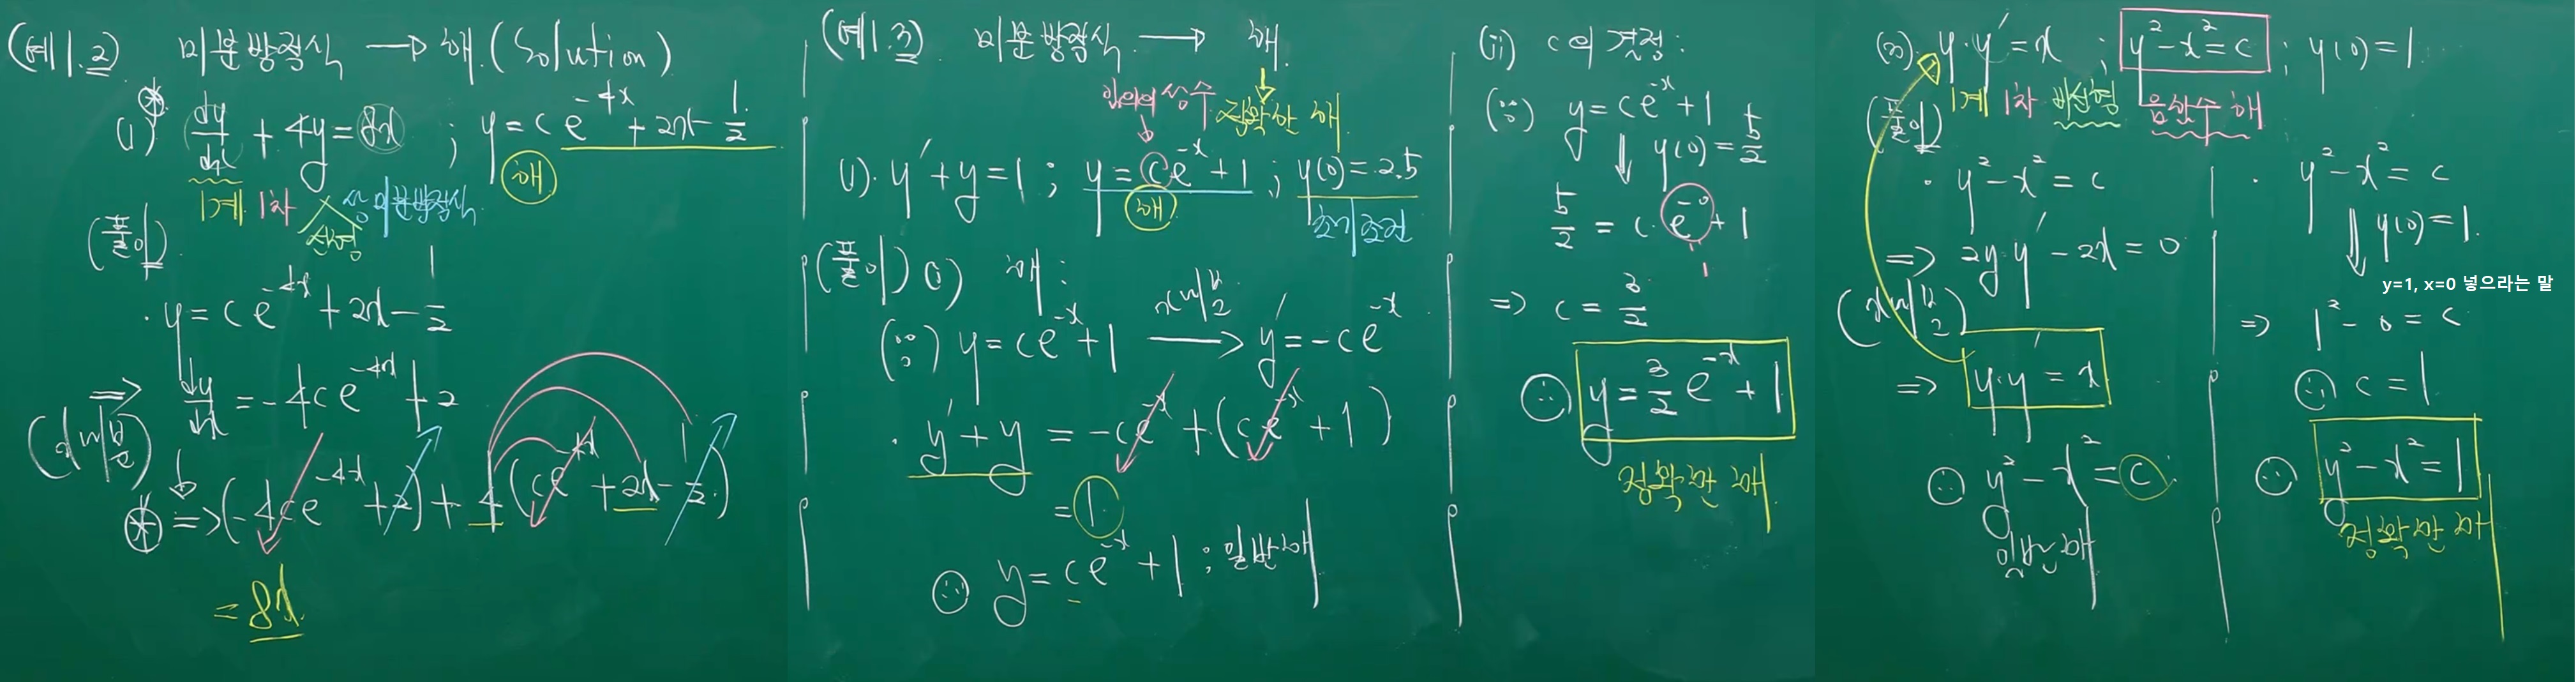 (예1.2) 미분방정식 → 해.(Solution)
(1) ⊛ dy/dx + 4y = 8x ; y = ce^{-4x} + 2x - 1/2
1계 1차 선형 상미분방정식
해
(풀이)
· y = ce^{-4x} + 2x - 1/2
⇒ dy/dx = -4ce^{-4x} + 2
⊛ ⇒ (-4ce^{-4x} + 2) + 4(ce^{-4x} + 2x - 1/2)
= 8x.
(예1.3) 미분방정식 → 해.
임의상수 정확한 해
(1). y' + y = 1 ; y = ce^{-x} + 1 ; y(0) = 2.5
해 초기조건
(풀이) (i) 해 :
(∵) y = ce^{-x} + 1 → y' = -ce^{-x}
x미분
· y' + y = -ce^{-x} + (ce^{-x} + 1)
= 1
∴ y = ce^{-x} + 1 ; 일반해
(ii) c의 결정:
(∵) y = ce^{-x} + 1
⇓ y(0) = 5/2
5/2 = c·e^{-0} + 1
1
⇒ c = 3/2
∴ y = 3/2 e^{-x} + 1
정확한 해
(2). y·y' = x ; y² - x² = c ; y(0) = 1.
1계 1차 비선형 음함수 해
(풀이)
· y² - x² = c
⇒ 2y·y' - 2x = 0
(x미분)
⇒ y·y' = x
∴ y² - x² = c
일반해
· y² - x² = c
⇓ y(0) = 1.
y=1, x=0 넣으라는 말
⇒ 1² - 0 = c
∴ c = 1
∴ y² - x² = 1
정확한 해